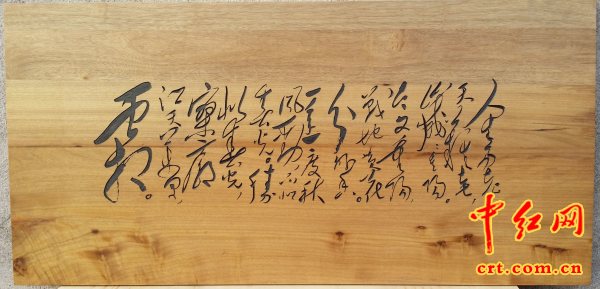 人生易老
天难老，
岁岁重阳。
今又重阳，
战地黄花
分外香。
一年一度秋
风劲，不似
春光。胜
似春光，
寥廓
江天万里
霜。
中红网
crt.com.cn